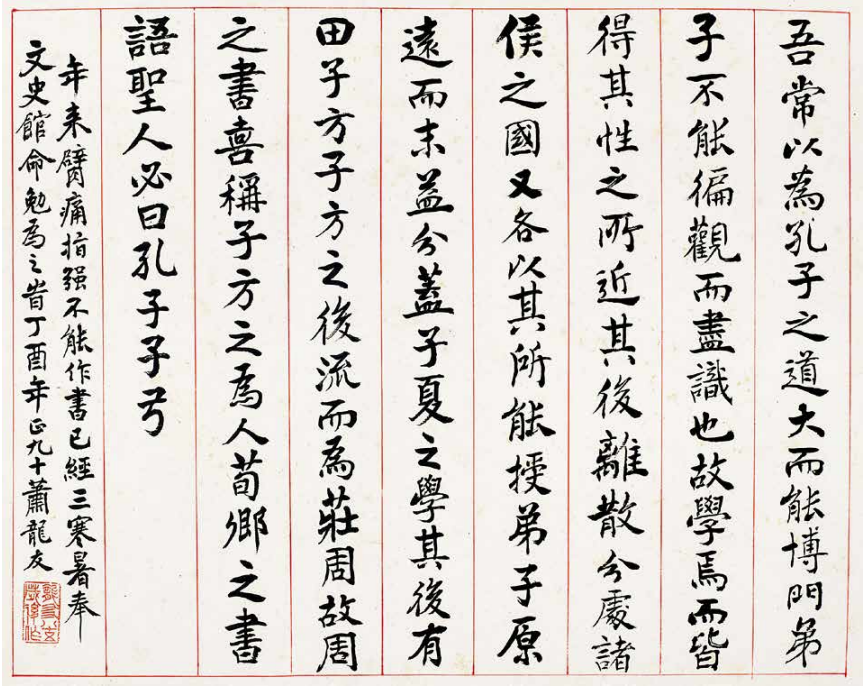 吾常以為孔子之道大而能博門弟
子不能徧觀而盡識也故學焉而皆
得其性之所近其後離散分處諸
侯之國又各以其所能授弟子原
遠而末益分蓋子夏之學其後有
田子方子方之後流而為莊周故周
之書喜稱子方之為人荀卿之書
語聖人必曰孔子子弓
年来臂痛指强不能作書已經三寒暑奉
文史館命勉為之昔丁酉年正九十蕭龍友